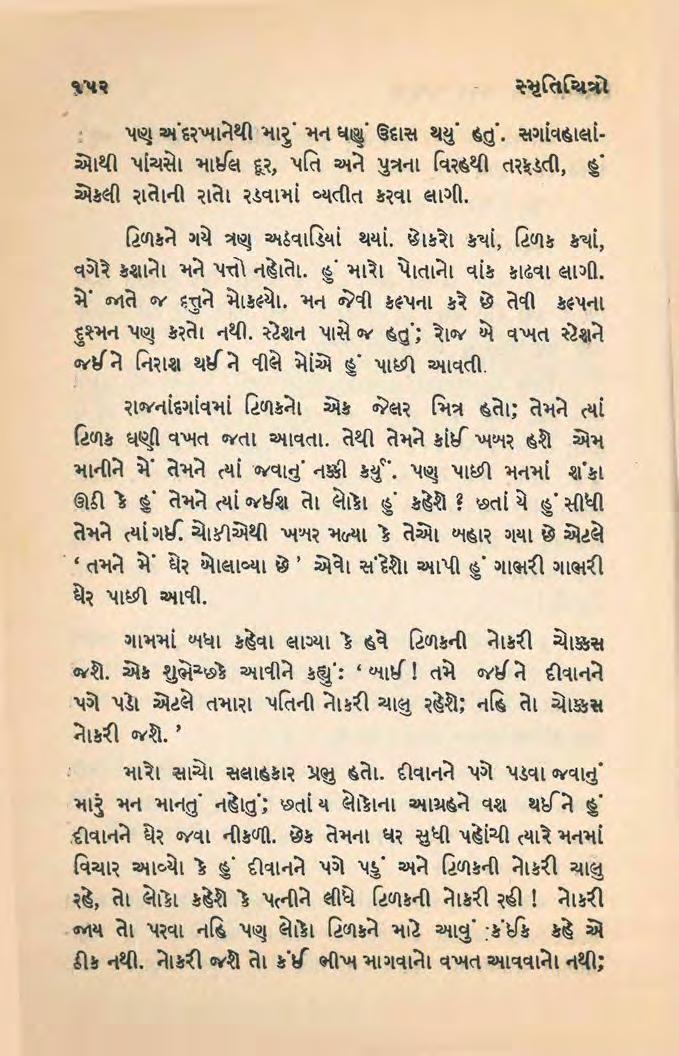 ૧૫૨ સ્મૃતિચિત્રો
પણ અંદરખાનેથી મારું મન ઘણું ઉદાસ થયું હતું. સગાંવહાલાં-
ઓથી પાંચસો માઈલ દૂર, પતિ અને પુત્રના વિરહથી તરફડતી, હું
એકલી રાતોની રાતો રડવામાં વ્યતીત કરવા લાગી.
ટિળકને ગયે ત્રણ અઠવાડિયાં થયાં. છોકરો કયાં, ટિળક કયાં,
વગેરે કશાનો મને પત્તો નહોતો. હું મારો પોતાનો વાંક કાઢવા લાગી.
મેં જાતે જ દત્તુને મોકલ્યો. મન જેવી કલ્પના કરે છે તેવી કલ્પના
દુશ્મન પણ કરતો નથી. સ્ટેશન પાસે જ હતું; રોજ બે વખત સ્ટેશને
જઈને નિરાશ થઈને વીલે મોંએ હું પાછી આવતી.
રાજનાંદગાંવમાં ટિળકનો એક જેલર મિત્ર હતો; તેમને ત્યાં
ટિળક ઘણી વખત જતા આવતા. તેથી તેમને કાંઈ ખબર હશે એમ
માનીને મેં તેમને ત્યાં જવાનું નક્કી કર્યું. પણ પાછી મનમાં શંકા
ઊઠી કે હું તેમને ત્યાં જઈશ તો લોકો શું કહેશે ? છતાં યે હું સીધી
તેમને ત્યાં ગઈ. ચોકીએથી ખબર મળ્યા કે તેઓ બહાર ગયા છે એટલે
‘ તમને મેં ઘેર બોલાવ્યા છે ’ એવો સંદેશો આપી હું ગાભરી ગાભરી
ઘેર પાછી આવી.
ગામમાં બધા કહેવા લાગ્યા કે હવે ટિળકની નોકરી ચોક્કસ
જશે. એક શુભેચ્છકે આવીને કહ્યું: ‘ બાઈ ! તમે જઈને દીવાનને
પગે પડો એટલે તમારા પતિની નોકરી ચાલુ રહેશે; નહિ તો ચોક્કસ
નોકરી જશે. ’
મારો સાચો સલાહકાર પ્રભુ હતો. દીવાનને પગે પડવા જવાનું
મારું મન માનતું નહોતું; છતાં ય લોકોના આગ્રહને વશ થઈને હું
દીવાનને ઘેર જવા નીકળી. છેક તેમના ઘર સુધી પહોંચી ત્યારે મનમાં
વિચાર આવ્યો કે હું દીવાનને પગે પડું અને ટિળકની નોકરી ચાલુ
રહે, તો લોકો કહેશે કે પત્નીને લીધે ટિળકની નોકરી રહી ! નોકરી
જાય તો પરવા નહિ પણ લોકો ટિળકને માટે આવું કંઈક કહે એ
ઠીક નથી. નોકરી જશે તો કંઈ ભીખ માગવાનો વખત આવવાનો નથી;